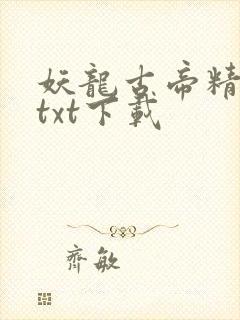 妖龍古帝精
txt下載
齊敏